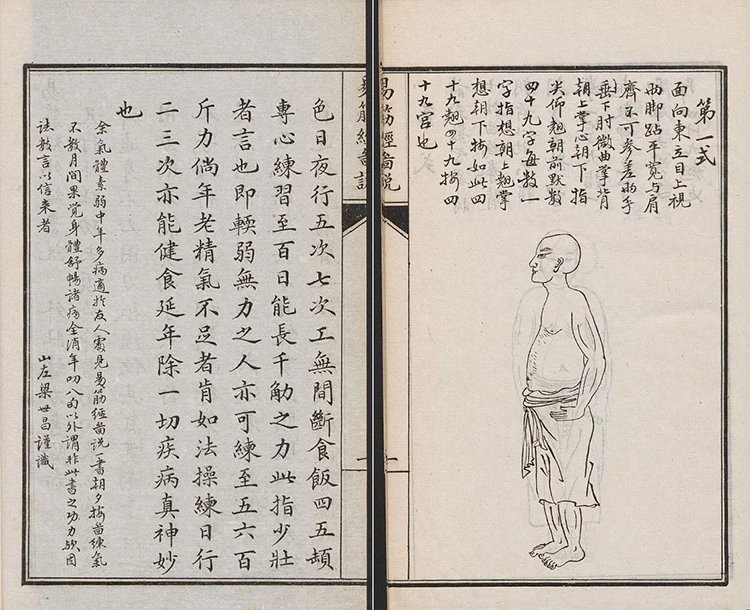 第一式
面向東立目上視
兩脚跕平寬與肩
齊不可參差兩手
垂下肘微曲掌背
朝上掌心朝下指
尖仰翹朝前默數
四十九字每數一
字指想朝上翹掌
想朝下按如此四
十九翹四十九按四
十九宮也
易筋經圖說
易筋經圖說
色日夜行五次七次工無間斷食飯四五頓
專心練習至百日能長千觔之力此指少壯
者言也即輭弱無力之人亦可練至五六百
斤力倘年老精氣不足者肯如法操練日行
二三次亦能健食延年除一切疾病真神妙
也
余氣體素弱中年多病適於友人處見易筋經圖說一書朝夕按圖練氣
不數月間果覺身體舒暢諸病全消年叨八旬以外謂非此書之功力欤因
誌數言以信來者
山左梁世昌謹識